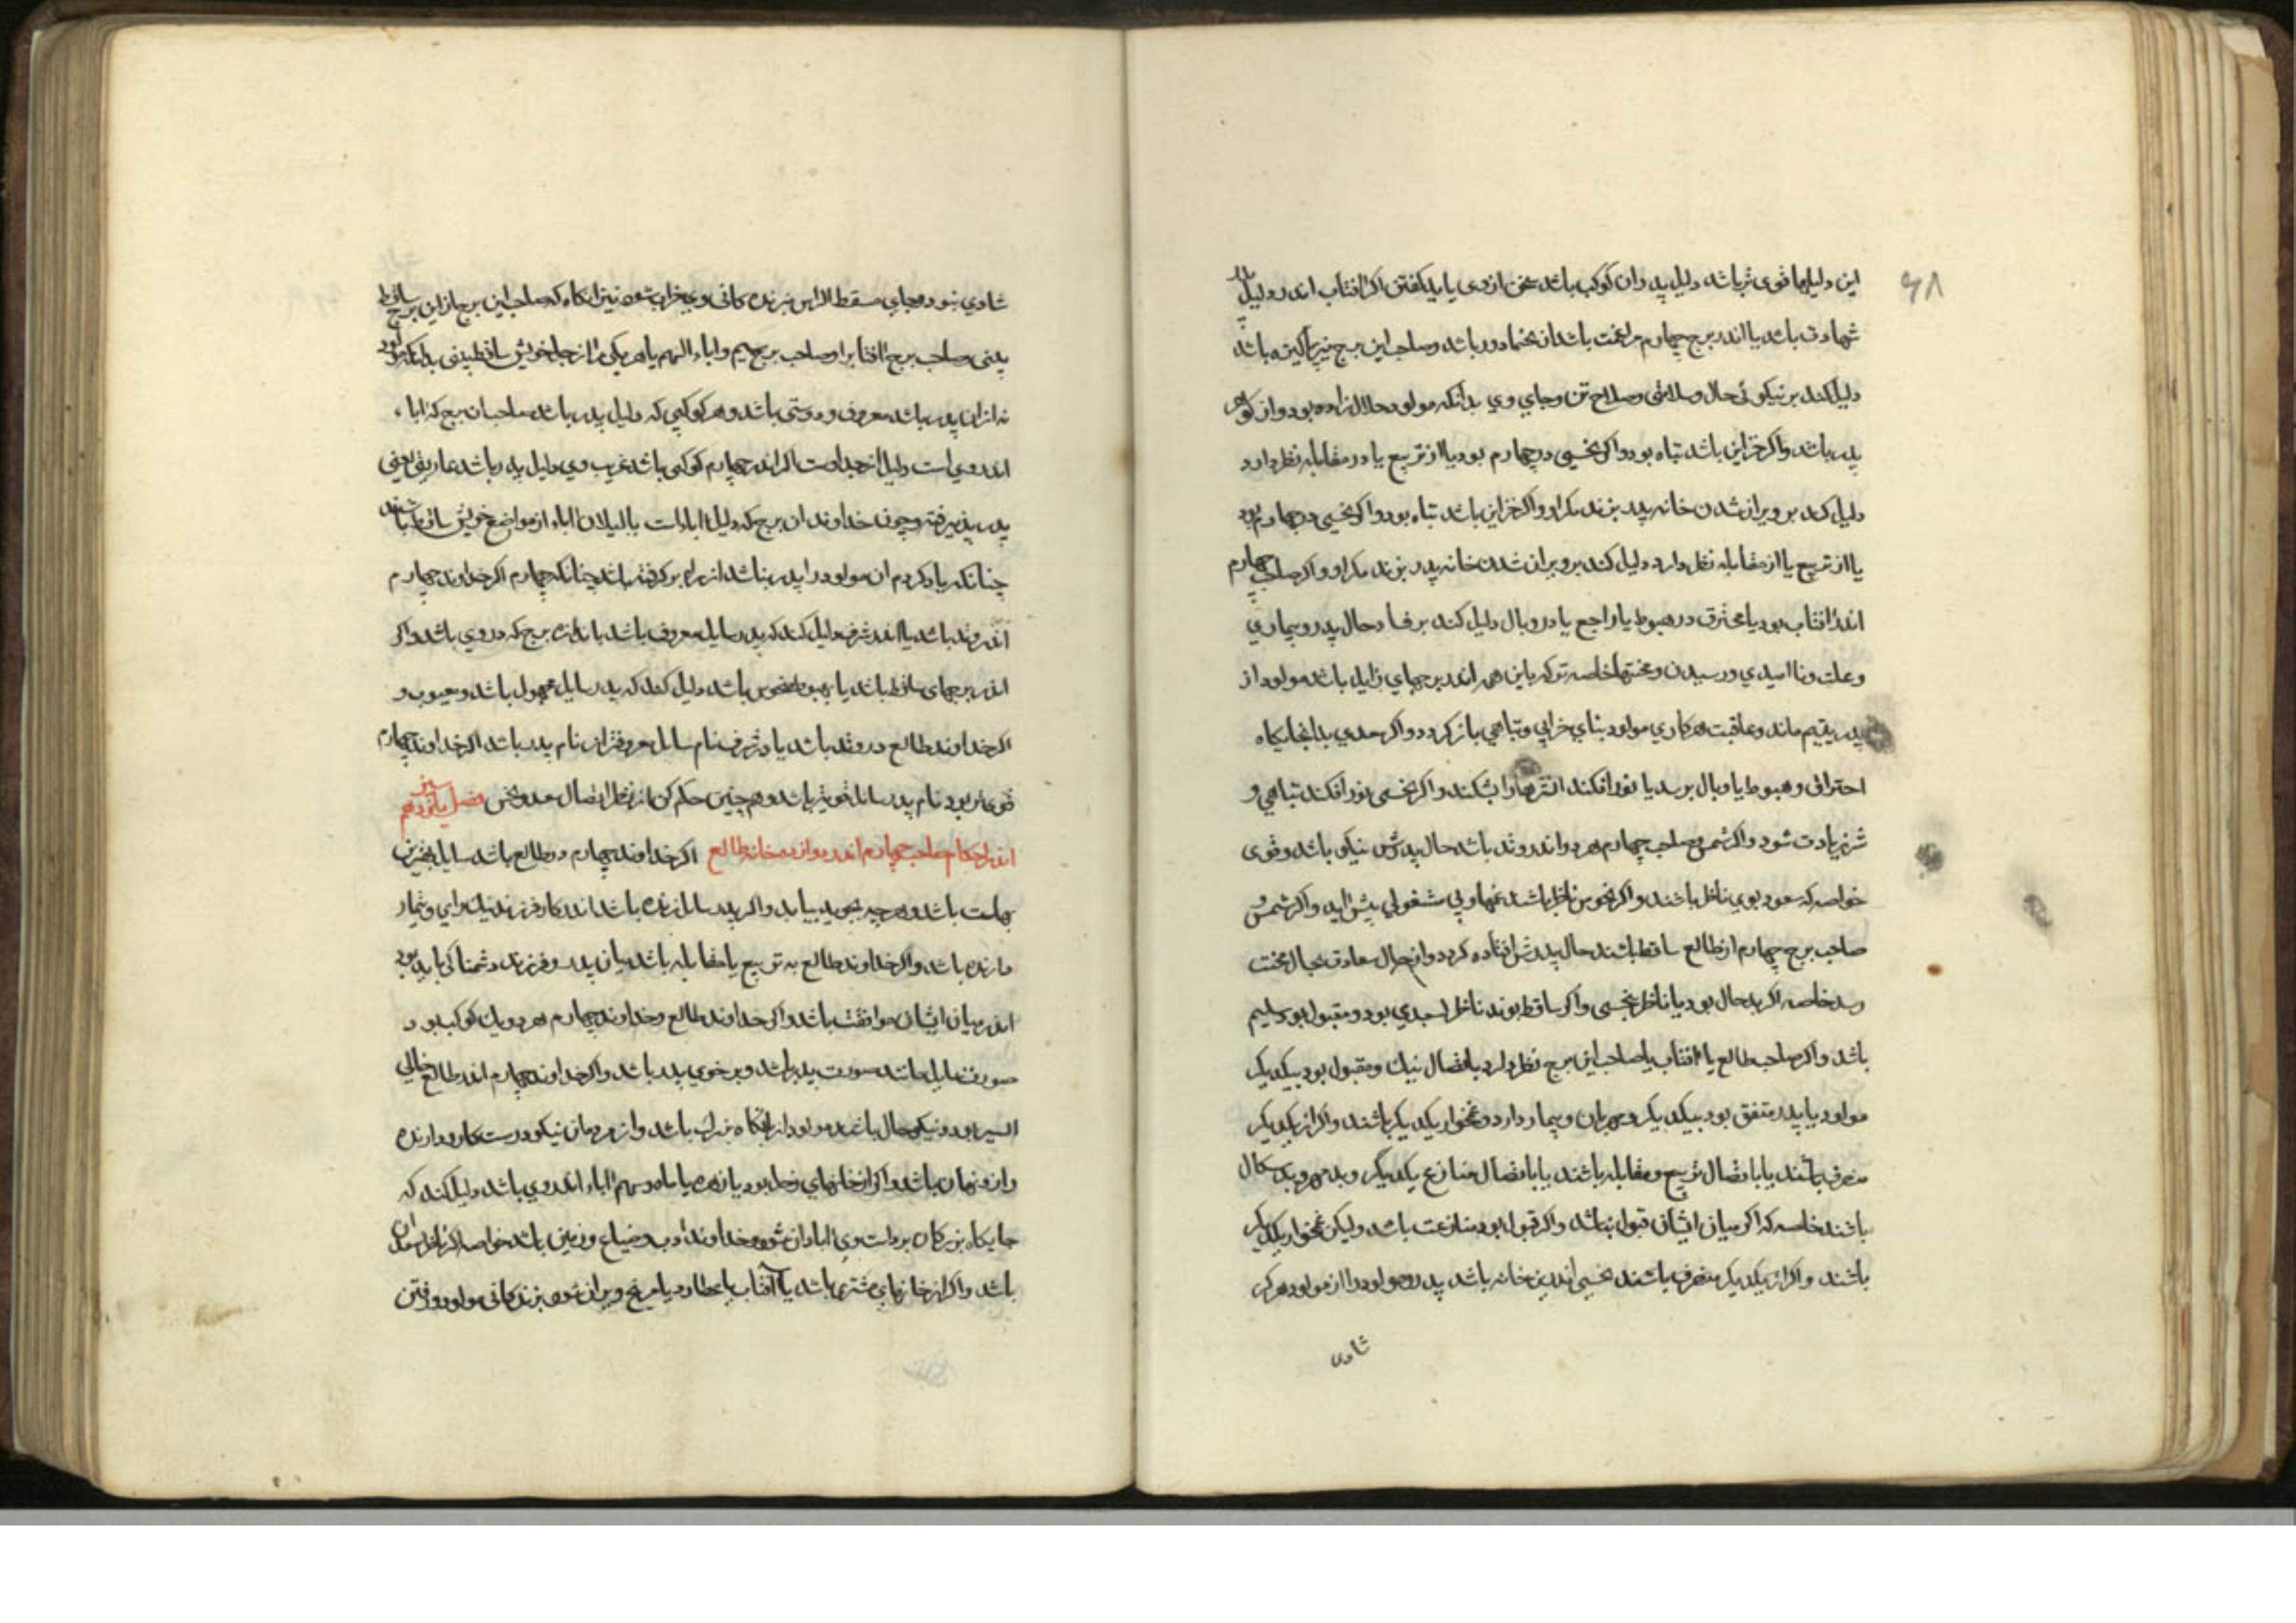 ۶۸
این دلیلها قوی تر باشد دلیل پدر وان کوکب باشد سخن از وی باید کفتن اکر افتاب اندر دلیل
شهادت باشد یا اندر برج چهارم مراغمت باشد از نحسها دور باشد وصاحب این برج نیز پاکیزه باشد
دلیل کند بر نیکوئی حال وسلامتی وصلاح تن وجای وی بدانکه مولود حلال زاده بود واز کوهر
پدر باشد واکر جز این باشد تباه بود واکر نحسی در چهارم بود یا از تربیع یا در مقابله نظر دارد
دلیل کند بر ویران شدن خانه پدر بزندکی او واکر جز این باشد تباه بود واکر نحسی در چهارم بود
یا از تربیع یا از مقابله نظر دارد دلیل کند بر ویران شدن خانه پدر بزندکی او واکر صاحب چهارم
اندر افتاب بود یا محترق در هبوط یا راجع یا در وبال دلیل کند بر فساد حال پدر وبیماری
وعلت ونا امیدی ورسیدن ومحنتها خاصه ترکه با این همه اندر برجهای زایل باشد مولود از
پدر یتیم ماند وعاقبت هر کاری مولود بنای خرابی وتباهی باز کردد واکر سعدی بدانجایکاه
احتراق وهبوط یا وبال برسد یا نور افکند انتشرها را بشکند واکر نحسی نور افکند تباهی و
شر زیادت شود واکر شمس وصاحب چهارم هر دو اندر وتد باشد حال پدرش نیکو باشد وقوی
خواصه که سعود بوی ناظر باشند واکر نحوس ناظر باشند غمها وبی شغولی پیش اید واکر شمس و
صاحب برج چهارم از طالع ساقط باشند حال پدرش افتاده کردد واز حال سعادت بحال محنت
رسد خاصه اکر بد حال بود یا ناظر بنحسی واکر ساقط بوند ناظر بسعدی بود ومقبول بود سلیم
باشد واکر صاحب طالع یا افتاب یا صاحب این برج نظر دارد باتصال نیک ومقبول بود بیکدیکر
مولود با پدر متفق بود بیکدیکر ومهربان وبیمار دارد وغمخوار یکدیکر باشند واکر از یکدیکر
منصرف باشند یا باتصال تربیع ومقابله باشند یا باتصال منازع یکدیکر وبد مهر وبد سکال
باشند خاصه که اکر میان ایشان قبول نباشد واکر قبول بود منازعت باشد ولیکن غمخوار یکدیکر
باشند واکر از یکدیکر منصرف باشند نحسی اندرین خانه باشد پدر ومولود را از مولود هرکز
شادی
شادی نبود وبجای مسقط الراس زندکانی وی خراب شود نیز انکاه که صاحب این برج از این برج ساقط
یعنی صاحب برج افتاب را وصاحب برج سیم واباء السهم یا هر یکی را از جای خویش ساقط بینی بدانکه مولود
نه از ان پدر باشد معروف ودوستی باشد وهر کوکبی که دلیل پدر باشد صاحبان برج که اباء
اندر وی است دلیل از جد اوست اکر اندر چهارم کوکبی باشد غریب وی دلیل پدر باشد عاریتی یعنی
پدر پذیرفته وچون خداوند ان برج که دلیل اباء است یا دلیلان اباء از مواضع خویش ساقط باشند
چنانکه یاد کردم ان مولود را پدر نباشد از راه بر کرفته باشد چنانکه چهارم اکر خداوند چهارم
اندر وتد باشد یا اندر شرف دلیل کند که پدر سایل معروف باشد باندازه برج که در وی باشد واکر
اندر برجهای ساقط باشد یا بهبوط منحوس باشد دلیل کند که پدر سایل مجهول باشد ومعیوب و
اکر خداوند طالع در وتد باشد یا در شرف نام سایل معروفتر از نام پدر باشد اکر خداوند چهارم
قوی تر بود نام پدر سایل قوی تر باشد وهم چنین حکم کن از نظر اتصال سعد ونحس فصل پانزدهم
اندر احکام صاحب چهارم اندر دوازده خانه طالع اکر خداوند چهارم در طالع باشد سایل بهترین
جماعت باشد وهر چه بجوید بیابد واکر پدر سایل زنده باشد اندر کار فرزند نیک رای وتیمار
دارنده باشد واکر خداوند طالع به تربیع یا مقابله باشد میان پدر وفرزند دشمنا کی باید بود
اندر میان ایشان موافقت باشد واکر خداوند طالع وخداوند چهارم هر دو یک کوکب بود
صورت سایل مانند صورت پدر باشد وبر خوی پدر باشد واکر خداوند چهارم اندر طالع خالی
السیر بود ونیکو حال باشد مولود از انکاه بزرک باشد واز مردمان نیکو ودرست کار ودارنده
وان ونهان باشد واکر از خانهای زحل بود یا زهره یا ماه وسهم اباء اندر وی باشد دلیل کند که
جایکاه بزرکان بر دست وی ابادان شود وخداوند اب وضیاع وزمین باشد خواصه اکر ناظر بسعدان
باشد واکر از خانهای مشتری باشد یا آفتاب یا عطارد یا مریخ ویران شود بزندکانی مولود ورفتن